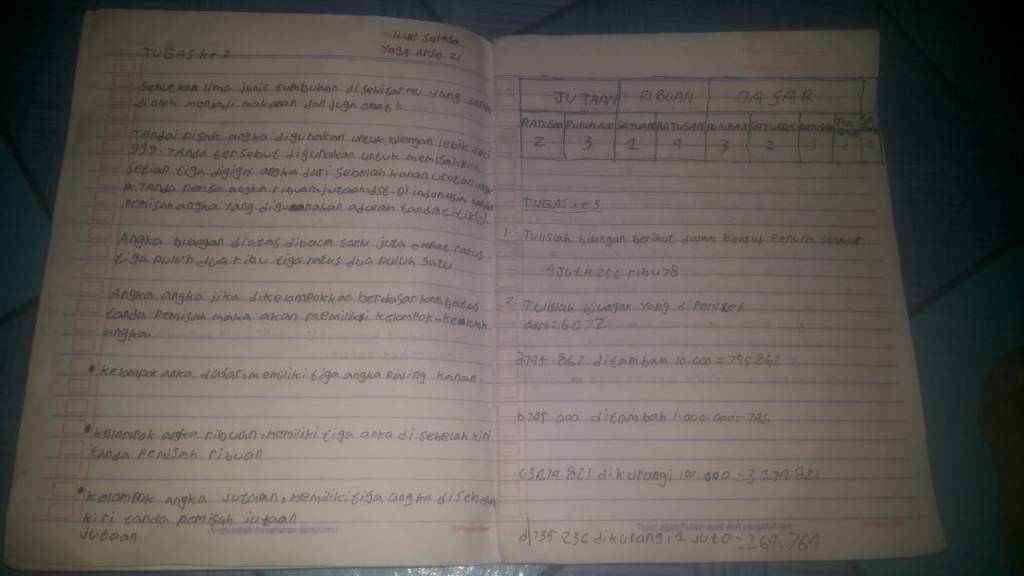 HARI SELASA
TUGAS ke 2
Sebutkan lima jenis tumbuhan disekitarmu yang dapat
diolah menjadi makanan dan juga obat
TANDAI PISAH angka digunakan untuk bilangan lebih dari
999. TANDA tersebut digunakan untuk memisahkan
setiap tiga angka dari sebelah kanan urutan
TANDA pemisah angka ribuan, jutaan, dst. Di indonesia tanda
pemisah angka yang digunakan adalah tanda titik(.)
Angka bilangan diatas dibaca satu juta empat ratus
tiga puluh dua ribu tiga ratus dua puluh satu
Angka angka jika dikelompokkan berdasarkan batas
tanda pemisah maka akan memiliki kelompok-kelompok
angka.
• Kelompok anka dasar=memiliki tiga angka paling kanan.
• Kelompok angka ribuan=memiliki tiga anka di sebelah kiri
tanda pemisah ribuan
• Kelompok angka jutaan=memiliki tiga angka disebelah
kiri tanda pemisah jutaan
Jutaan
JUTAAN RIBUAN DASAR
RATUSAN PULUHAN SATUAN RATUSAN PULUHAN SATUAN
2 3 1 4 3 2
TUGAS ke 3
1. Tulislah bilangan berikut dalam bentuk penulis
9 JUTA 256 ribu 78
2. Tulislah bilangan yang diperoleh
a 745.862 ditambah 10.000=755.862
b.745.000 ditambah 1.000.000=746
c 3174.821 dikurangi 100.000=3174.821
d 735.236 dikurangi 1 Juta=264.764